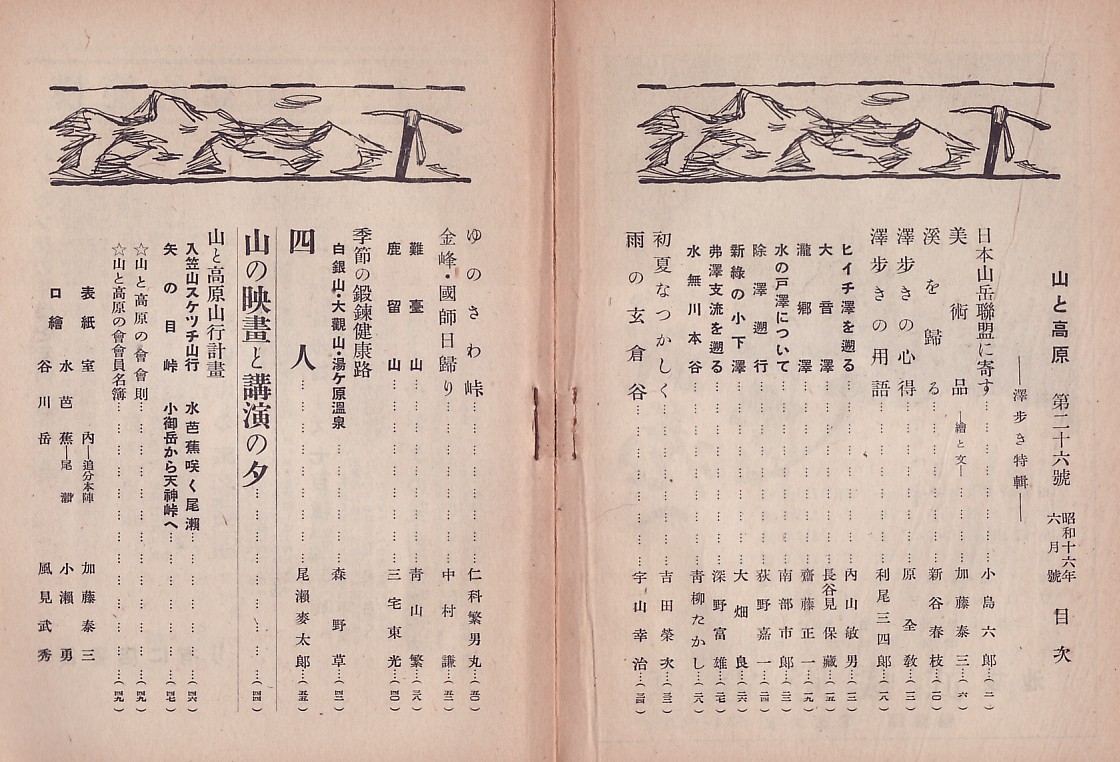 山と高原 第二十六號 昭和十六年六月號 目次
―澤歩き特輯―
日本山岳聯盟に寄す……小島六郎…(二)
美術品―繪と文―……加藤泰三…(六)
溪を歸る……新谷春枝…(一〇)
澤歩きの心得……原全敎…(一二)
澤歩きの用語……利尾三四郎…(一八)
ヒイチ澤を遡る……內山敏男…(一二)
大音澤……長谷見保藏…(一五)
瀧郷澤……齋藤正一…(一九)
水の戸澤について……南部市郎…(二三)
除澤遡行……荻野嘉一…(二四)
新綠の小下澤……大畑良…(二六)
弗澤支流を遡る……深野富雄…(二七)
水無川本谷……靑柳たかし…(二八)
初夏なつかしく……吉田榮次…(三二)
雨の玄倉谷……宇山幸治…(三四)
ゆのさわ峠……仁科繁男丸…(五〇)
金峰・國師日歸り……中村謙…(五二)
難臺山……靑山繁…(三八)
鹿留山……三宅東光…(四〇)
季節の鍛錬健康路
白銀山・大觀山・湯ケ原溫泉……森野草…(四二)
四人……尾瀨麥太郎…(五五)
山の映畫と講演の夕……(四四)
山と高原山行計畫
入笠山スケッチ山行 水芭蕉咲く尾瀨……(四六)
矢の目峠 小御岳から天神峠へ……(四七)
☆山と高原の會會則……(四九)
☆山と高原の會會員名簿……(四九)
表紙 室內―追分本陣 加藤泰三
水芭蕉―尾瀨 小瀨勇
口繪 谷川岳 風見武秀